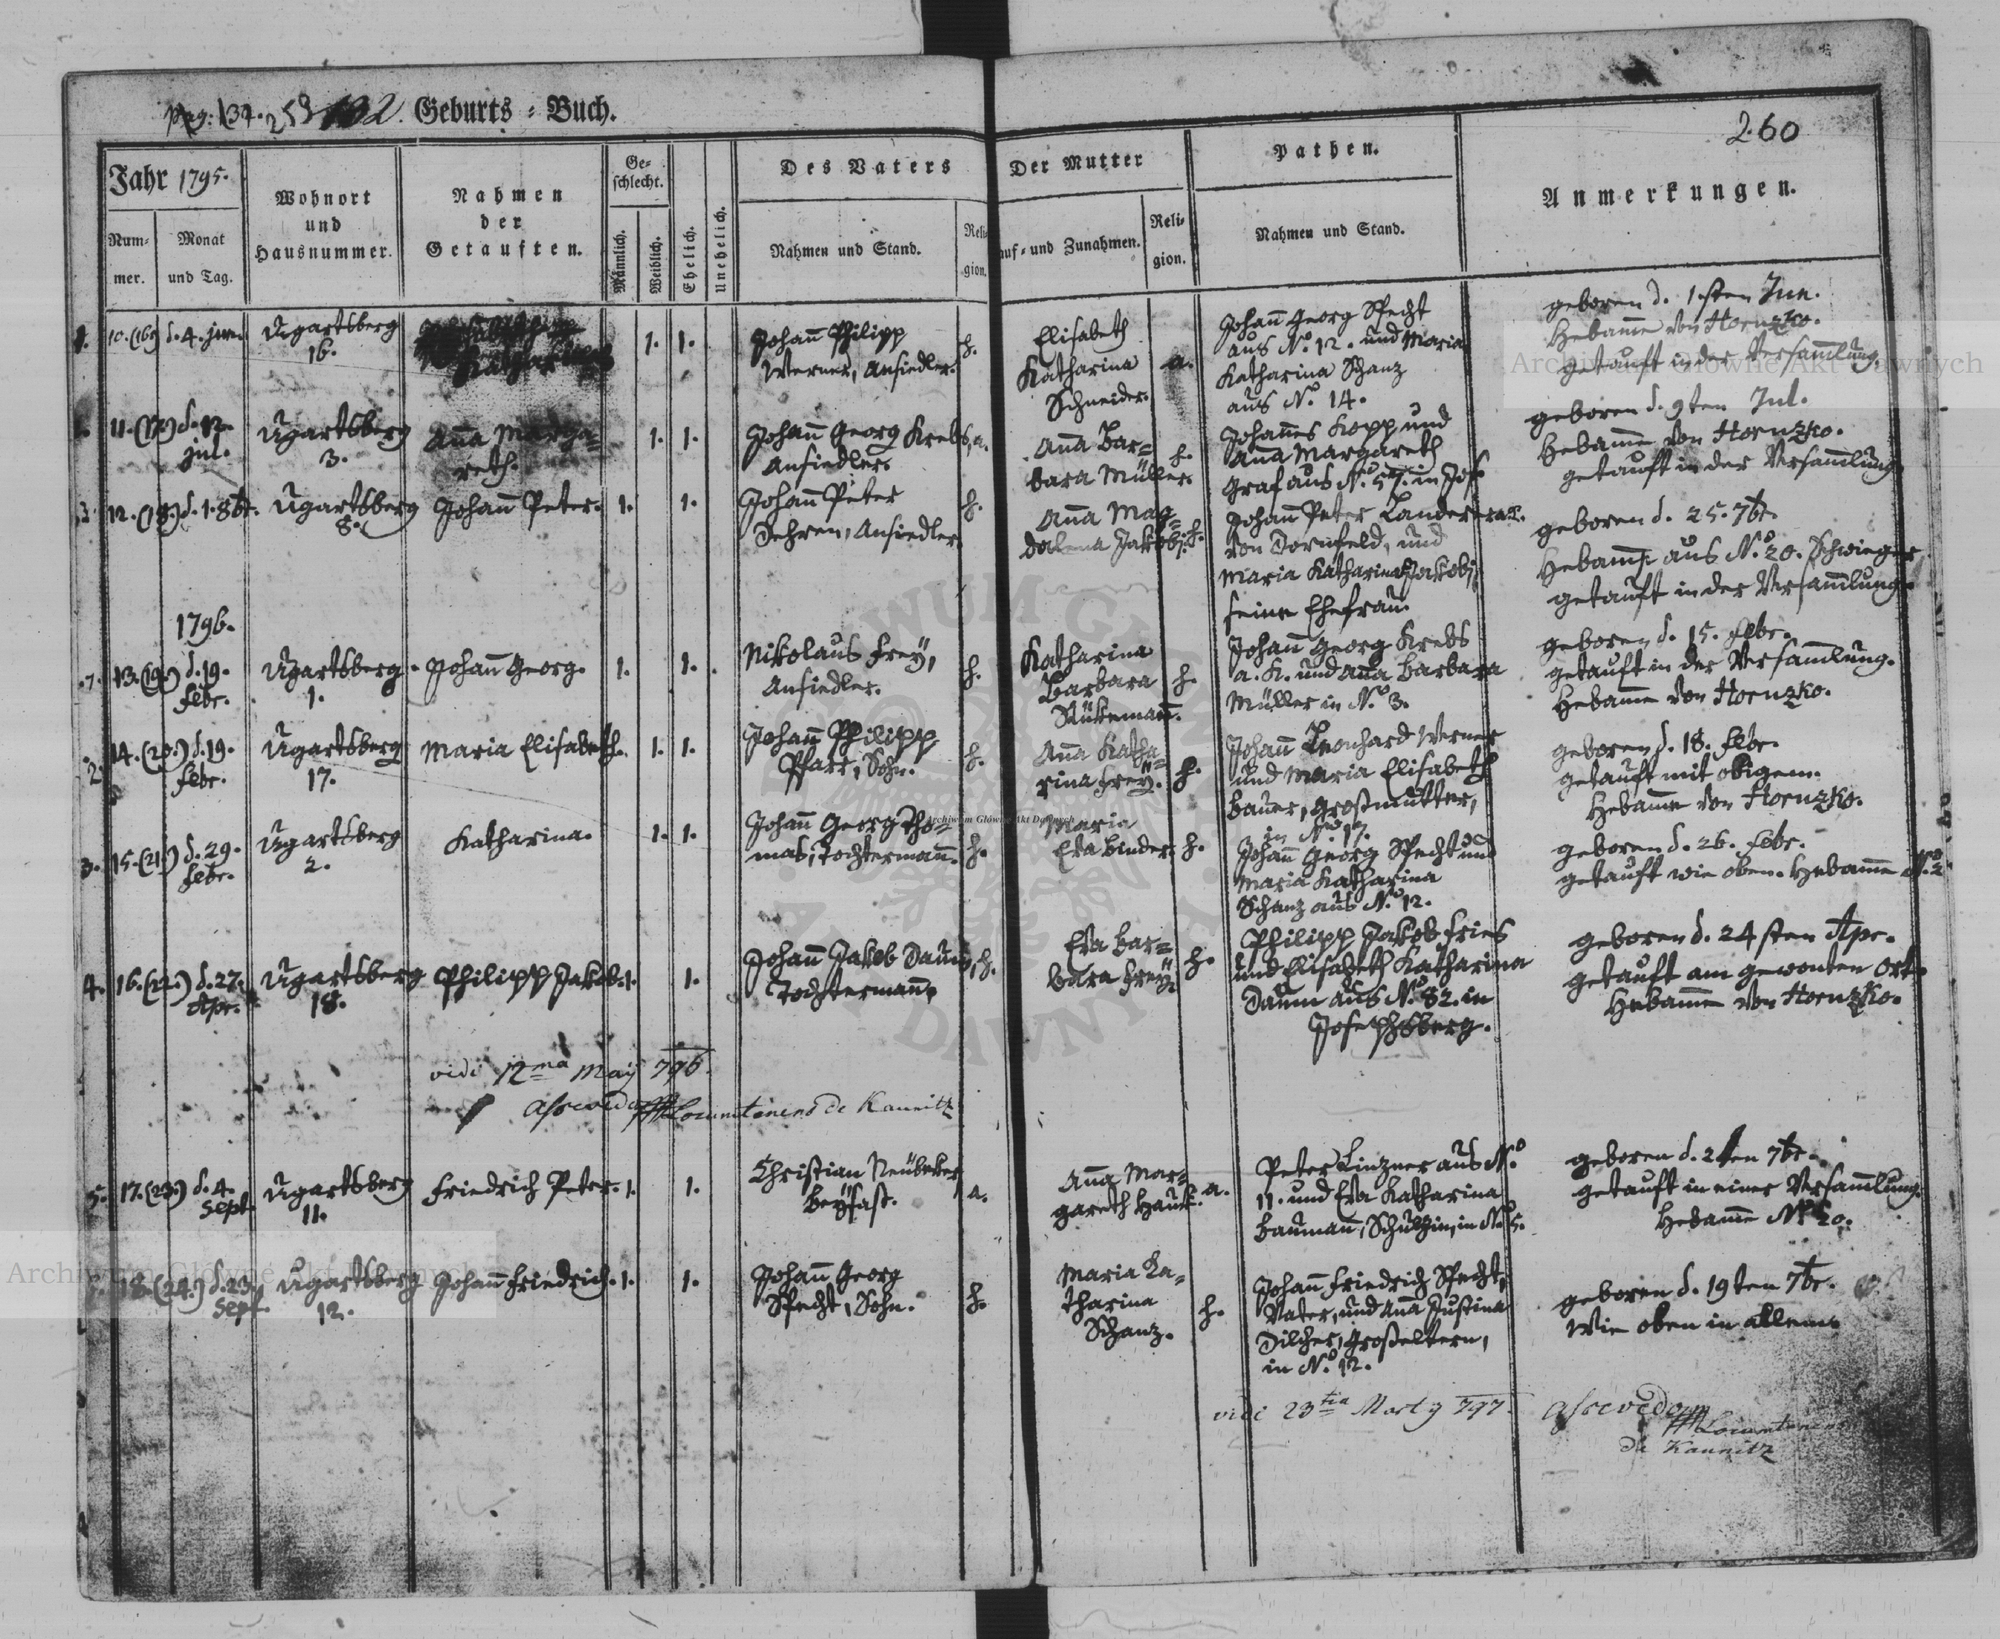 Pag: 134. 259 132. Geburts-Buch.
260
Jahr 1795.
Num-
mer.
Monat
und Tag.
Wohnort
und
Hausnummer.
Nahmen
der
Getauften.
Ge-
schlecht.
Männlich.
Weiblich.
Ehelich.
Unehelich.
Des Vaters
Nahmen und Stand.
Reli-
gion.
Der Mutter
auf- und Zunahmen.
Reli-
gion.
Pathen.
Nahmen und Stand.
Anmerkungen.
10. (16) d. 4. jun.
Ugartsberg
16.
Katharina
1. 1.
Johann Philipp
Werner, Ansiedler.
h.
Elisabeth
Katharina
Schneider.
a.
Johann Georg Specht
aus N.º 12. und Maria
Katharina Schanz
aus N.º 14.
geboren d. 1.sten Jun.
Hebamme von Hornzko.
getauft in der Versammlung.
11. (17.) d. 12.
jul.
Ugartsberg
3.
Anna Marga=
reth.
1. 1.
Johann Georg Krebs,
Ansiedler.
a.
Anna Bar=
bara Müller.
h.
Johannes Kopp und
Anna Margareth
Graf aus N.º 57. in Jos.
geboren d. 9ten Jul.
Hebamme von Hornzko.
getauft in der Versammlung
12. (18.) d. 1. 8br.
Ugartsberg
8.
Johann Peter.
1. 1.
Johann Peter
Dehren, Ansiedler.
h.
Anna Mag=
dalena Jakobi.
h.
Johann Peter Landerer
von Dornfeld, und
Maria Katharina Jakobi,
seine Ehefrau.
geboren d. 25. 7br.
Hebamme aus N.º 20. Schwieger
getauft in der Versammlung.
1796.
1. 13. (19.) d. 19.
febr.
Ugartsberg.
1.
Johann Georg.
1. 1.
Nikolaus Frey,
Ansiedler.
h.
Katharina
Barbara
Rükemann.
h.
Johann Georg Krebs
a. K. und Anna Barbara
Müller in N.º 3.
geboren d. 15. febr.
getauft in der Versammlung.
Hebamme von Hornzko.
2. 14. (20.) d. 19.
febr.
Ugartsberg
17.
Maria Elisabeth.
1. 1.
Johann Philipp
Pfarr, Sohn.
h.
Anna Katha=
rina Frey.
h.
Johann Leonhard Werner
und Maria Elisabeth
Bauer, Großmutter,
in N.º 17.
geboren d. 18. febr.
getauft mit obigem.
Hebamme von Hornzko.
3. 15. (21.) d. 29.
febr.
Ugartsberg
2.
Katharina.
1. 1.
Johann Georg Tho=
mas, Tochtermann.
h.
Maria
Eva Binder.
h.
Johann Georg Specht und
Maria Katharina
Schanz aus N.º 12.
geboren d. 26. febr.
getauft wie oben. Hebamme N.º 2
4. 16. (22.) d. 27.
Apr.
Ugartsberg
18.
Philipp Jakob.
1. 1.
Johann Jakob Daum,
Tochtermann.
h.
Eva Bar=
bara Frey.
h.
Philipp Jakob Fries
und Elisabeth Katharina
Daum aus N.º 82. in
Josephsberg.
geboren d. 24sten Apr.
getauft am gewonten Ort.
Hebamme von Hornzko.
vidi 12ma May 796.
Asevedo Locumtenens de Kaunitz
5. 17. (23.) d. 4.
Sept.
Ugartsberg
11.
Friedrich Peter.
1. 1.
Christian Neübeker
Beysaß.
a.
Anna Mar=
gareth Hauk.
a.
Peter Linzner aus N.º
11. und Eva Katharina
Baumann, Schulzin, in N.º 5.
geboren d. 2ten 7br.
getauft in einer Versammlung.
Hebamme N.º 20.
18. (24.) d. 23.
Sept.
Ugartsberg
12.
Johann Friedrich.
1. 1.
Johann Georg
Specht, Sohn.
h.
Maria Ka=
tharina
Schanz.
h.
Johann Friedrich Specht,
Vater, und Anna Justina
Dilcher, Großeltern,
in N.º 12.
geboren d. 19ten 7br.
Wie oben in allem.
vidi 23tia Marty 797.
Asevedo
Locumtenens
de Kaunitz
Archiwum Główne Akt Dawnych